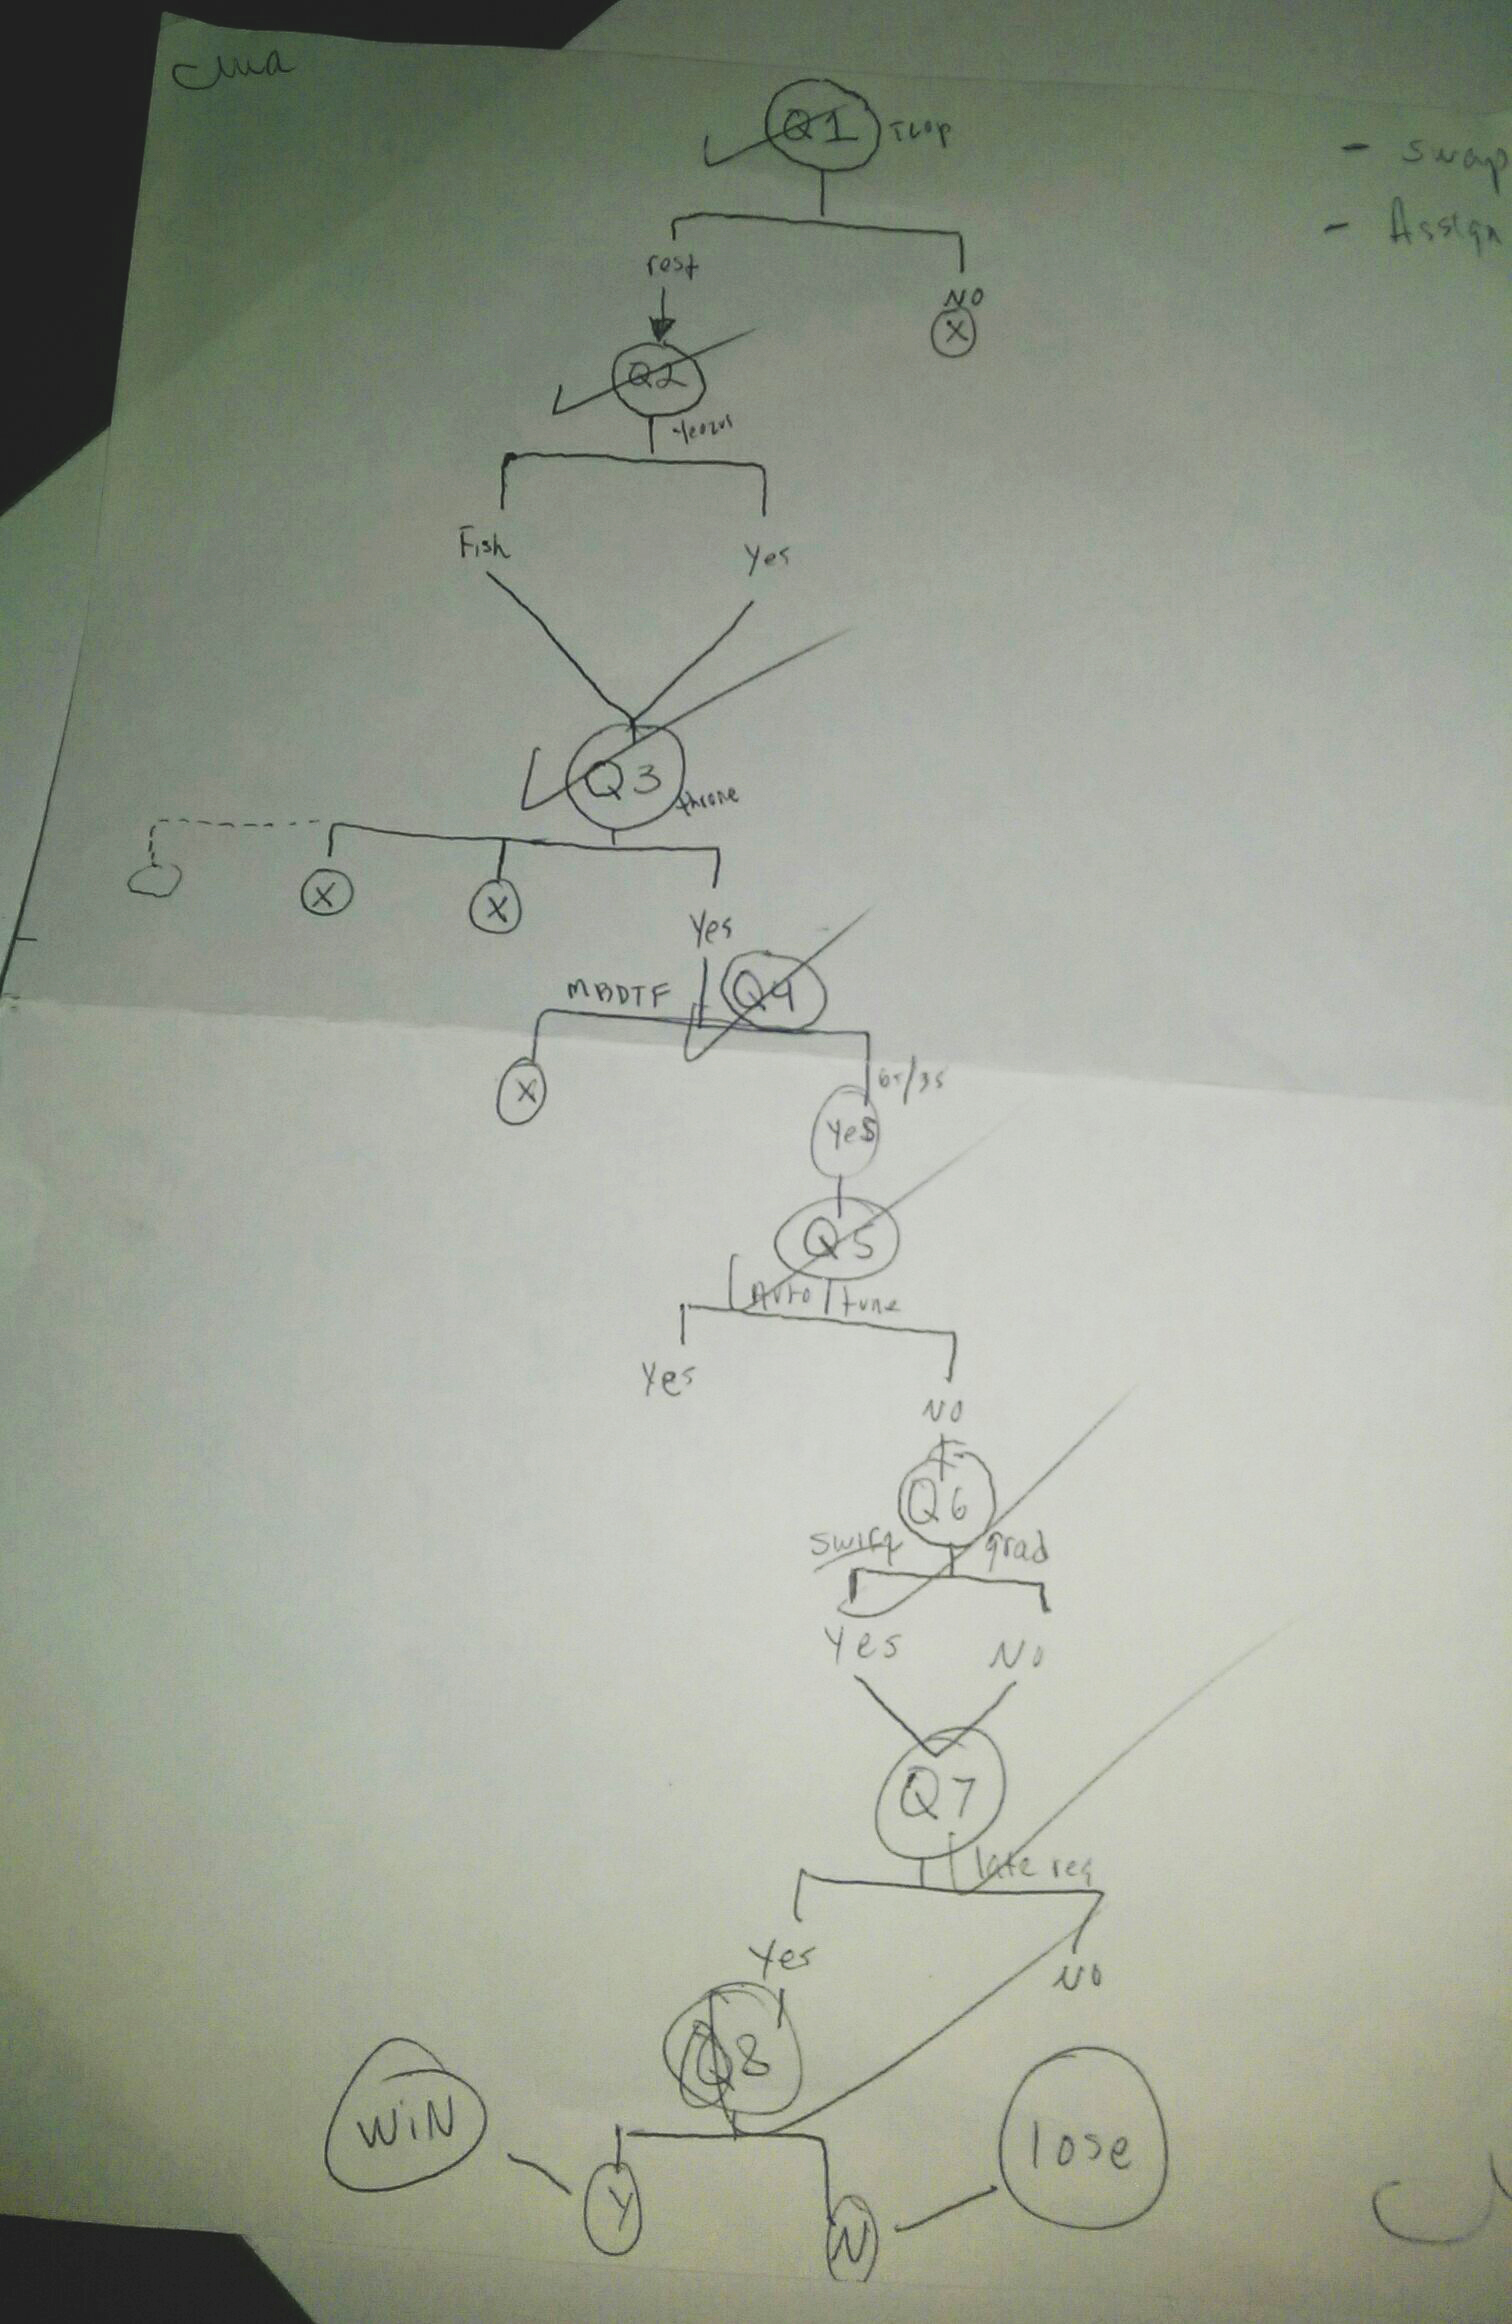 Q1 TLOP
- swap
- Assign
rest
NO
X
Q2
Yeezus
Fish
Yes
Q3
throne
X
X
Yes
MBDTF
Q4
X
Yes
Q5
Auto tune
Yes
NO
Q6
swift
grad
Yes
NO
Q7
late reg
Yes
NO
Q8
WiN
lose
Y
N